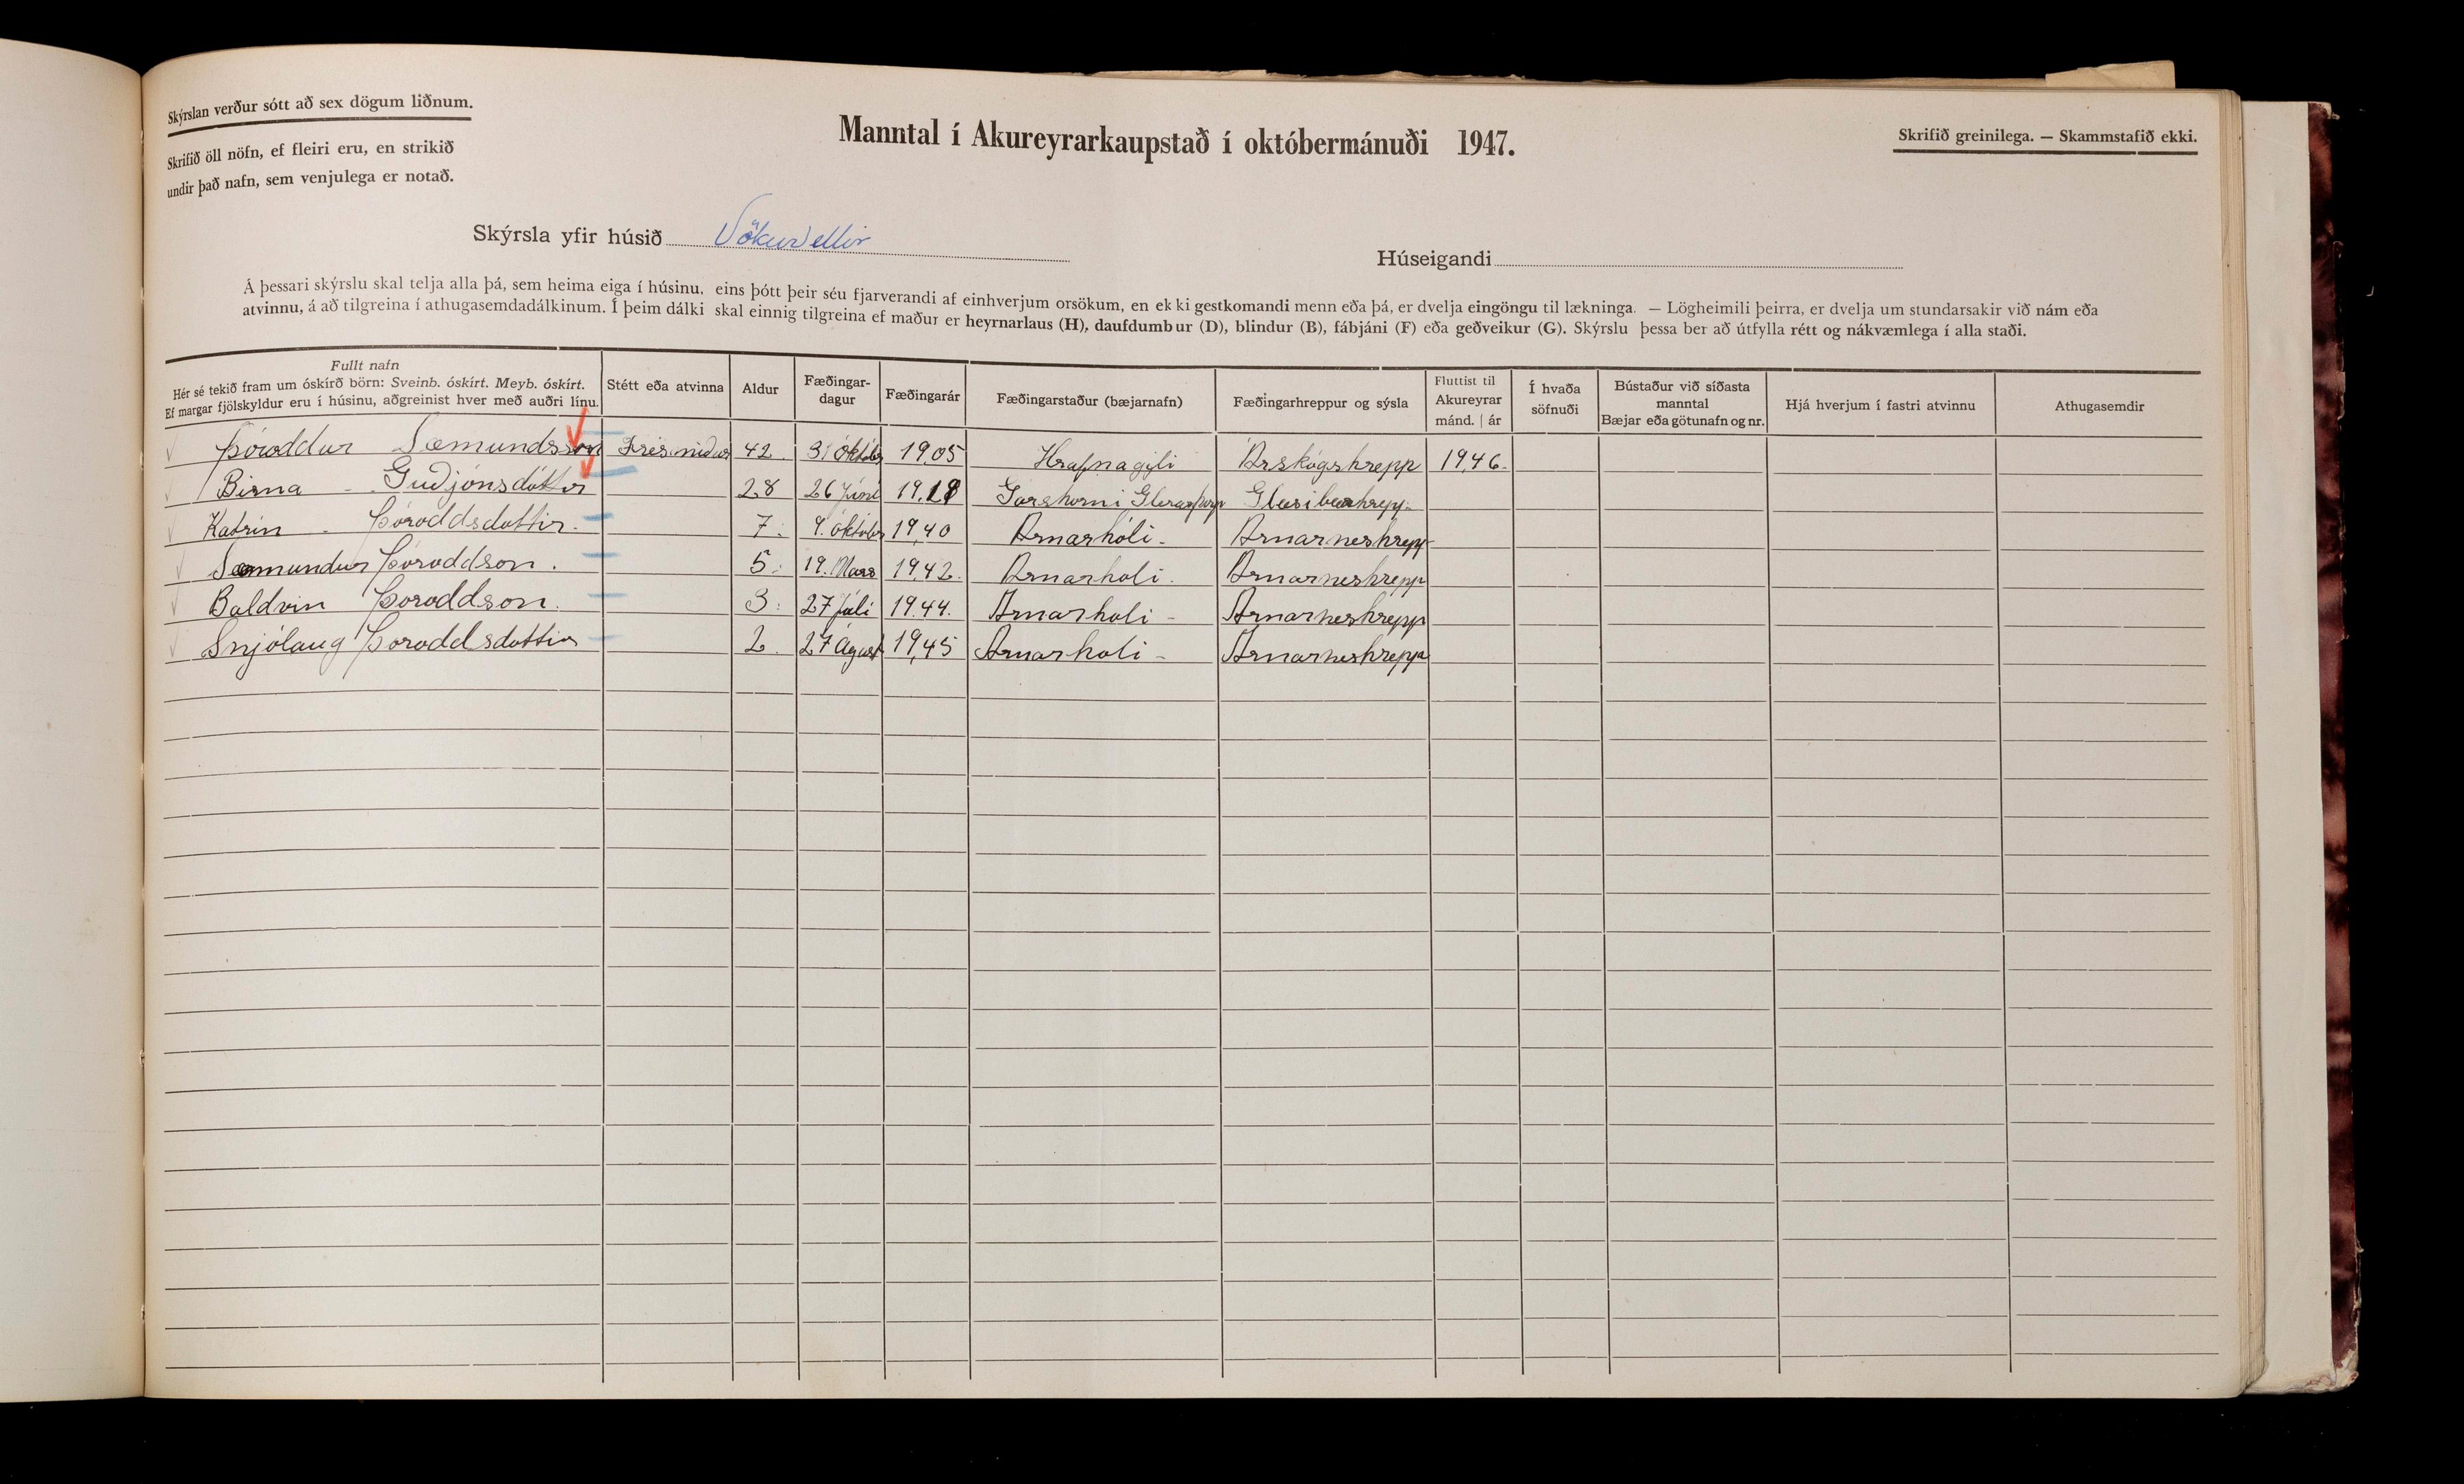 Skýrslan verður sótt að sex dögum liðnum.
Skrifið öll nöfn, ef fleiri eru, en strikið
undir það nafn, sem venjulega er notað.
Manntal í Akureyrarkaupstað í októbermánuði 1947.
Skrifið greinilega. — Skammstafið ekki.
Skýrsla yfir húsið Vökuvellir
Húseigandi
Á þessari skýrslu skal telja alla þá, sem heima eiga í húsinu, eins þótt þeir séu fjarverandi af einhverjum orsökum, en ekki gestkomandi menn eða þá, er dvelja eingöngu til lækninga. — Lögheimili þeirra, er dvelja um stundarsakir við nám eða
atvinnu, á að tilgreina í athugasemdadálkinum. Í þeim dálki skal einnig tilgreina ef maður er heyrnarlaus (H), daufdumbur (D), blindur (B), fábjáni (F) eða geðveikur (G). Skýrslu þessa ber að útfylla rétt og nákvæmlega í alla staði.
Fullt nafn
Hér sé tekið fram um óskírð börn: Sveinb. óskírt. Meyb. óskírt.
Ef margar fjölskyldur eru í húsinu, aðgreinist hver með auðri línu.
Stétt eða atvinna
Aldur
Fæðingar-
dagur
Fæðingarár
Fæðingarstaður (bæjarnafn)
Fæðingarhreppur og sýsla
Fluttist til
Akureyrar
mánd. | ár
Í hvaða
söfnuði
Bústaður við síðasta
manntal
Bæjar eða götunafn og nr.
Hjá hverjum í fastri atvinnu
Athugasemdir
Þóroddur Sæmundsson Trésmiður 42 3. október 1905 Hrafnagili Árskógshrepp 1946.
Birna - Guðjónsdóttir 28 26 Júní Glerárþorp
Katrín - Þóroddsdottir. 7. 4. október 1940 Arnarhóli - Arnarneshrepp
Sæmundur Þóroddson. 5. 19. Mars 1942. Arnarholi. Arnarneshrepp
Baldvin Þoroddson. 3. 27 Júli 1944. Arnarholi - Arnarneshrepp
Snjólaug Þoroddsdottir 2. 27 Ágúst 1945 Arnarholi - Arnarneshrepp